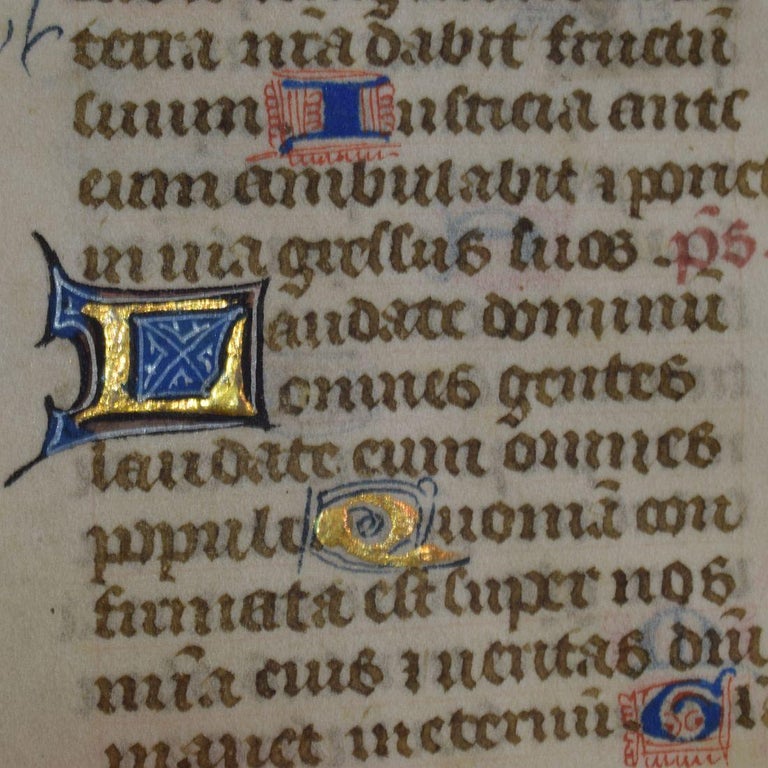 terra nr̄a dabit fructū
suum. Iusticia ante
eum ambulabit ⁊ ponet
in uia gressus suos. p̄s.
Laudate dominū
omnes gentes
laudate eum omnes
populi Quoniā con
firmata est super nos
mīa eius ⁊ ueritas dn̄i
manet ineternū. Gl̄